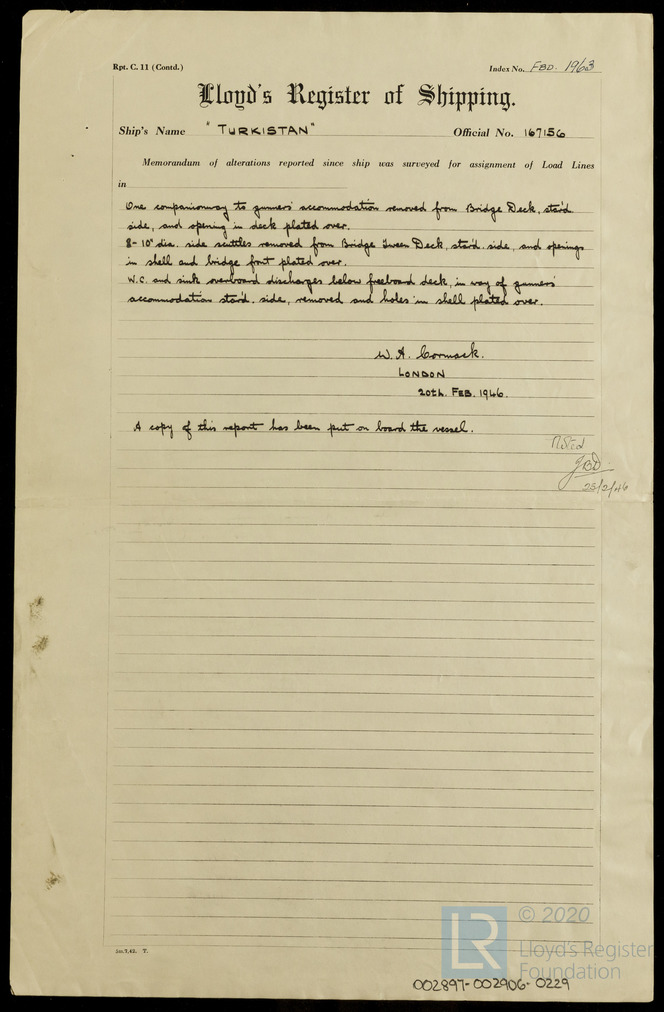 Rpt. C. 11 (Contd.)
Index No. FBD. 1963
Lloyd's Register of Shipping.
Ship's Name "TURKISTAN" Official No. 167156
Memorandum of alterations reported since ship was surveyed for assignment of Load Lines
in
One companionway to gunners' accommodation removed from Bridge Deck, star'd.
side, and opening in deck plated over.
8-10" dia. side scuttles removed from Bridge Tween Deck, star'd. side, and openings
in shell and bridge front plated over.
W.C. and sink overboard discharges below freeboard deck, in way of gunners'
accommodation star'd. side, removed and holes in shell plated over.
W. A. Cormack.
LONDON
20th. FEB. 1946.
A copy of this report has been put on board the vessel.
Noted
JBD
25/2/46
2m.7.42. T.
LR
© 2020
Lloyd's Register
Foundation
002897-002906-0229